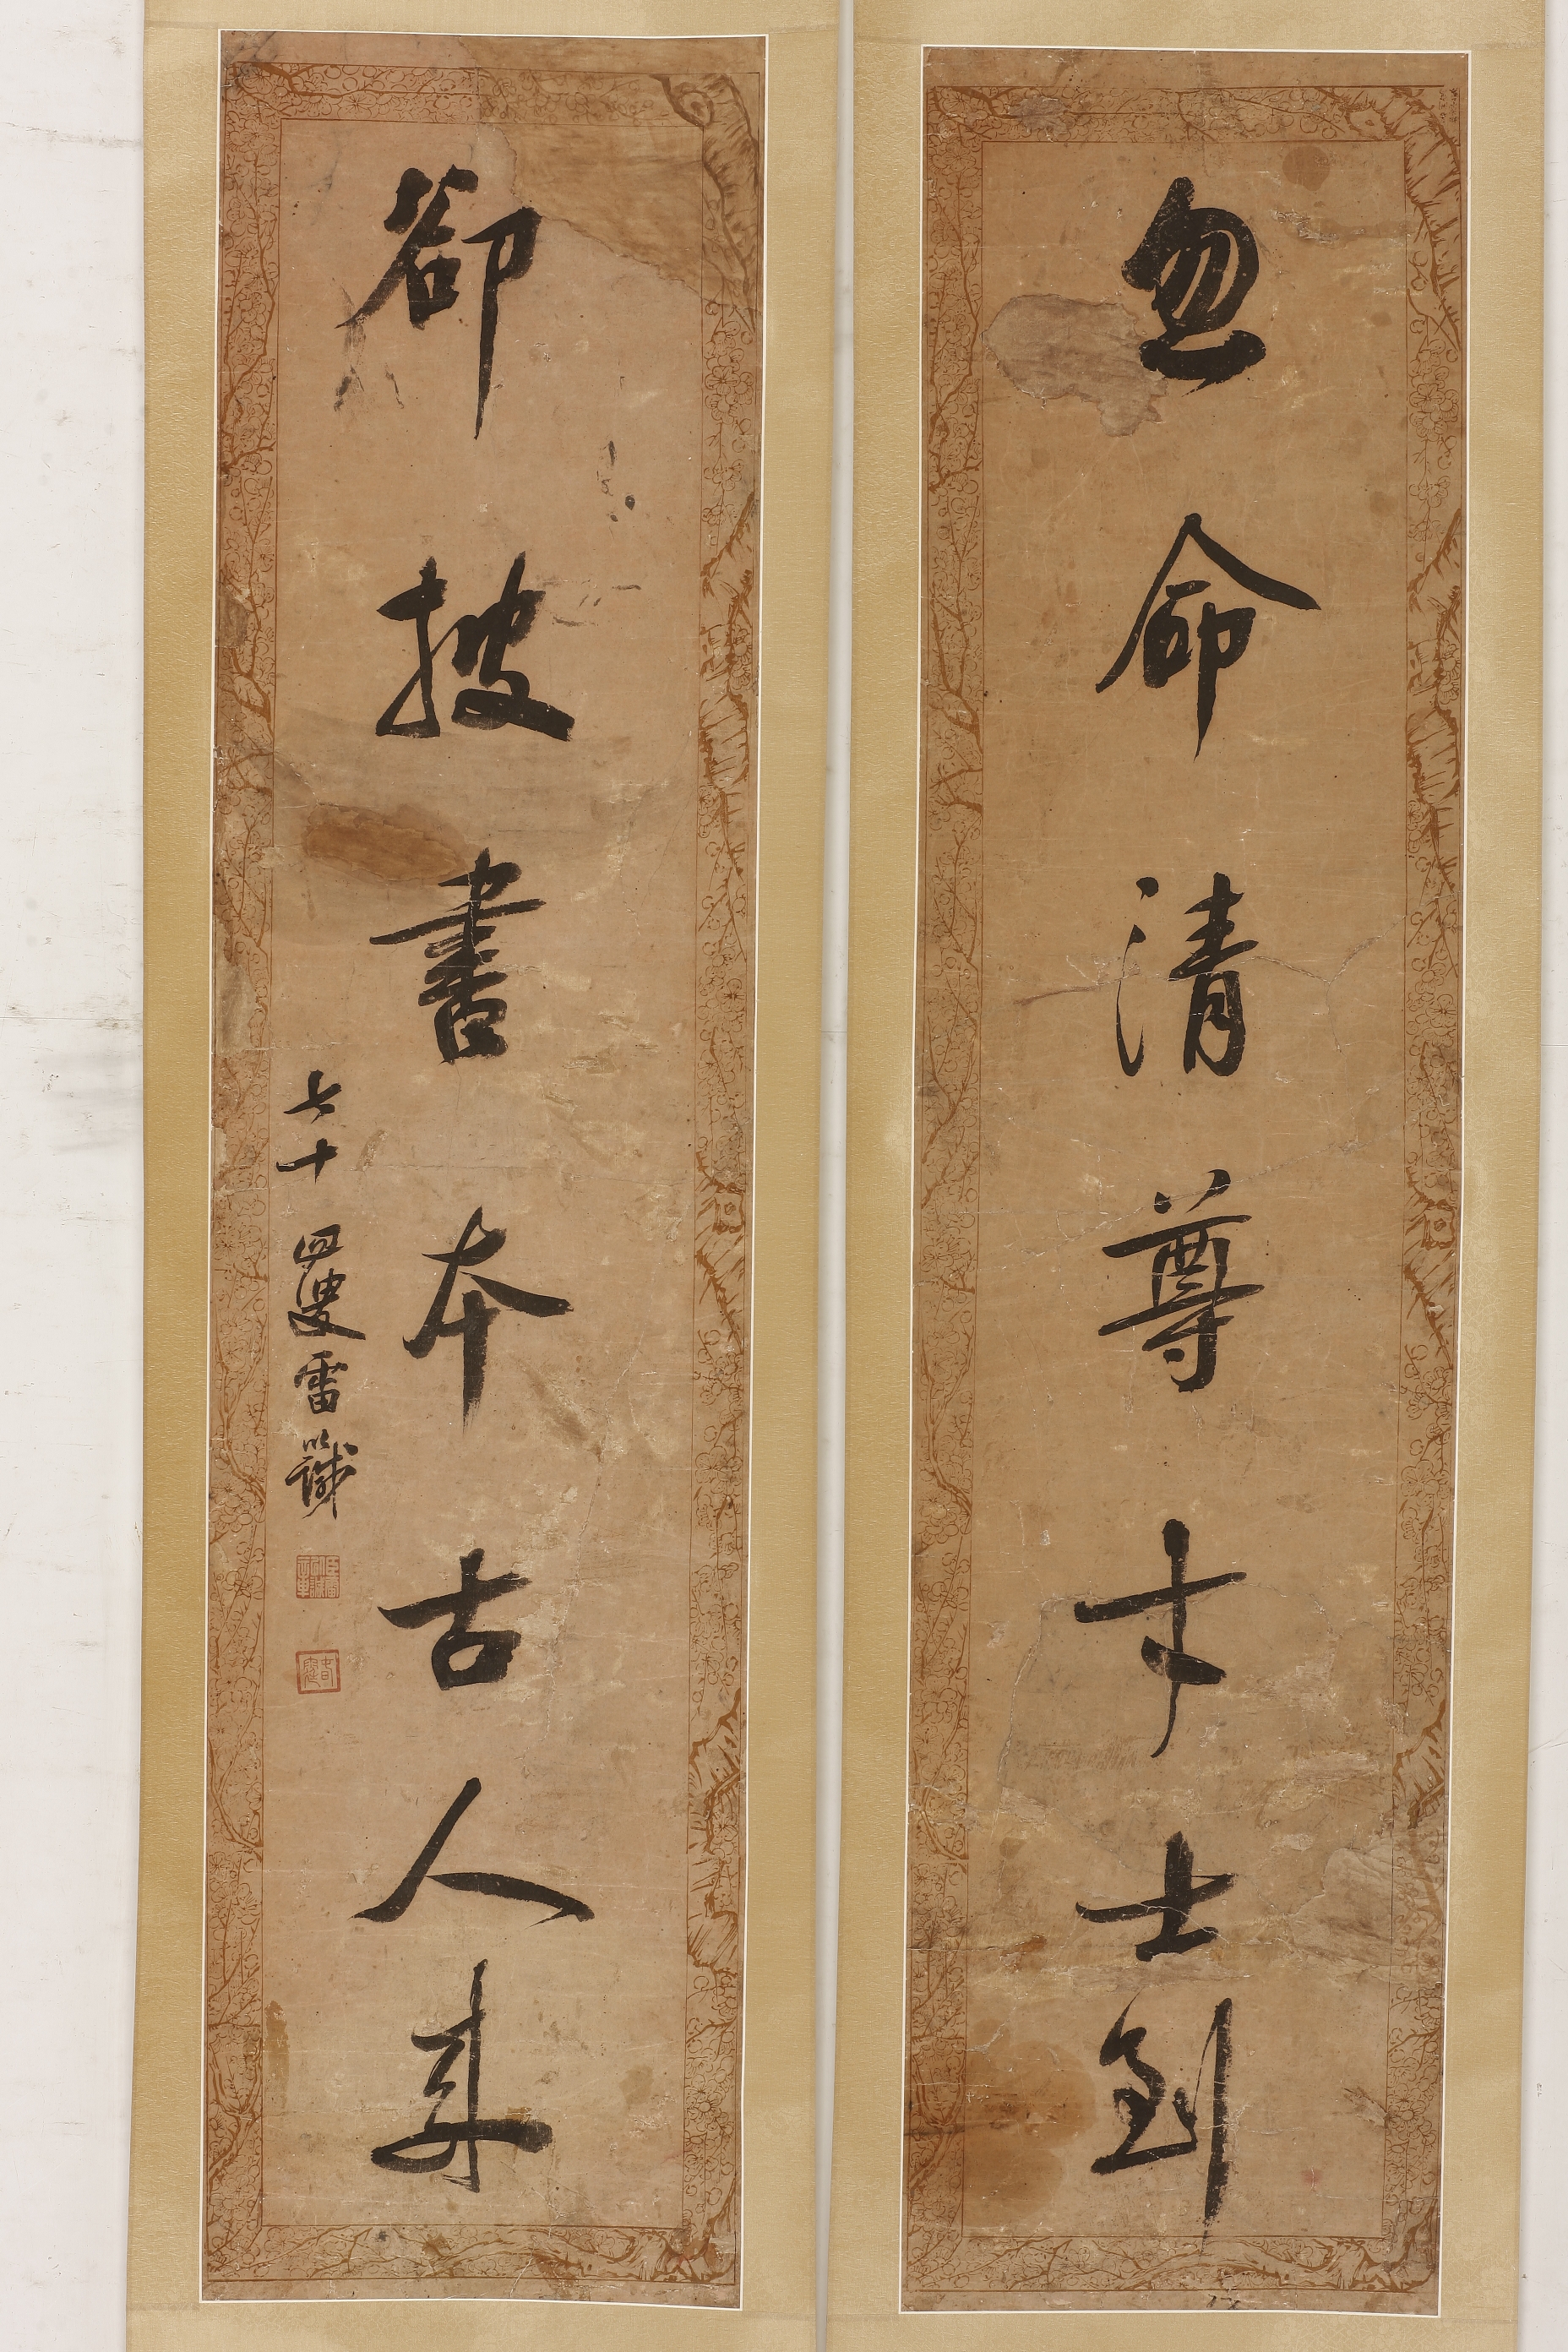 忽命清尊才士到
卻披書本古人來
七十四叟雷以諴